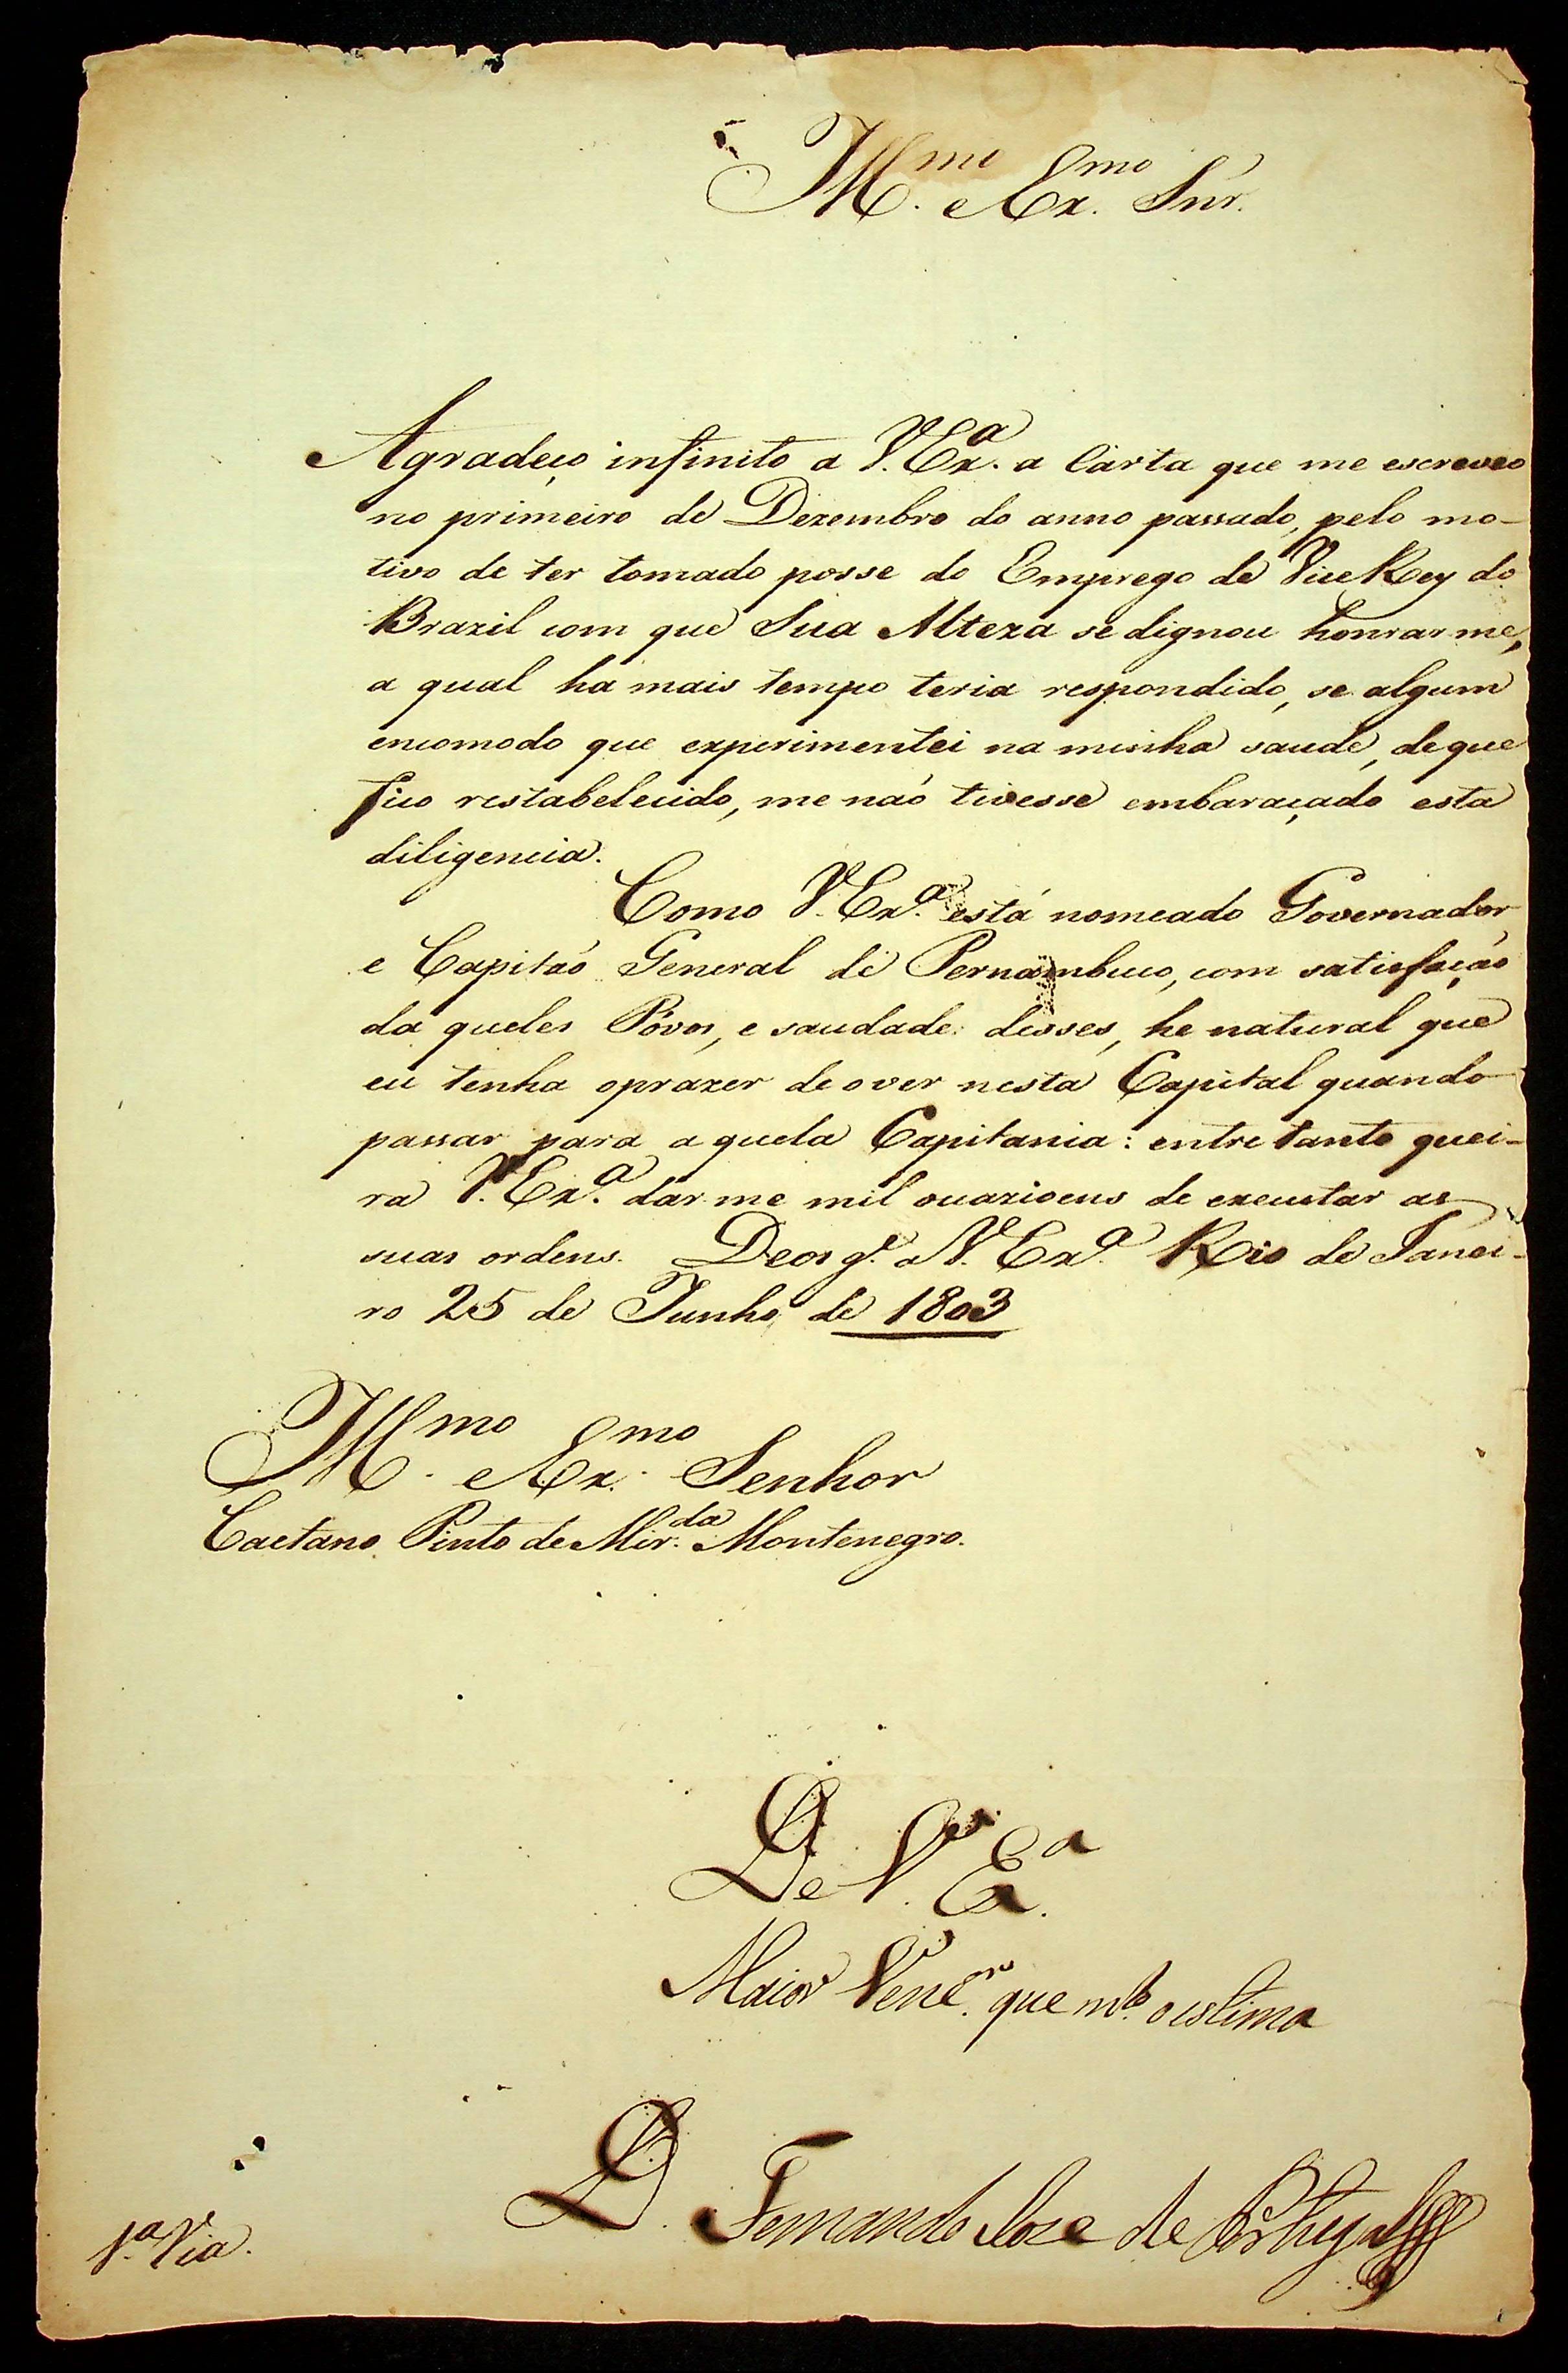 Ill.mo e Ex.mo Snr.
Agradeço infinito a V. Ex.a a Carta que me escreveo
no primeiro de Dezembro do anno passado, pelo mo-
tivo de ter tomado posse do Emprego de Vice Rey do
Brazil com que Sua Alteza se dignou honrar me,
a qual ha mais tempo teria respondido, se algum
encomodo que experimentei na minha saude, de que
fico restabelecido, me naõ tivesse embaraçado esta
diligencia.
Como V. Ex.a está nomeado Governador
e Capitaõ General de Pernambuco, com satisfaçaõ
da queles Póvos, e saudade desses, he natural que
eu tenha o prazer de o ver nesta Capital quando
passar para a quela Capitania: entre tanto quei-
ra V. Ex.a dar me mil ocazioens de executar as
suas ordens. Deos g.e a V. Ex.a Rio de Janei-
ro 25 de Junho de 1803
Ill.mo e Ex.mo Senhor
Caetano Pinto de Mir.da Montenegro.
De V. Ex.a
Maior Vene.or que m.to o estima
D. Fernando Joze de Portugal
1.a Via.